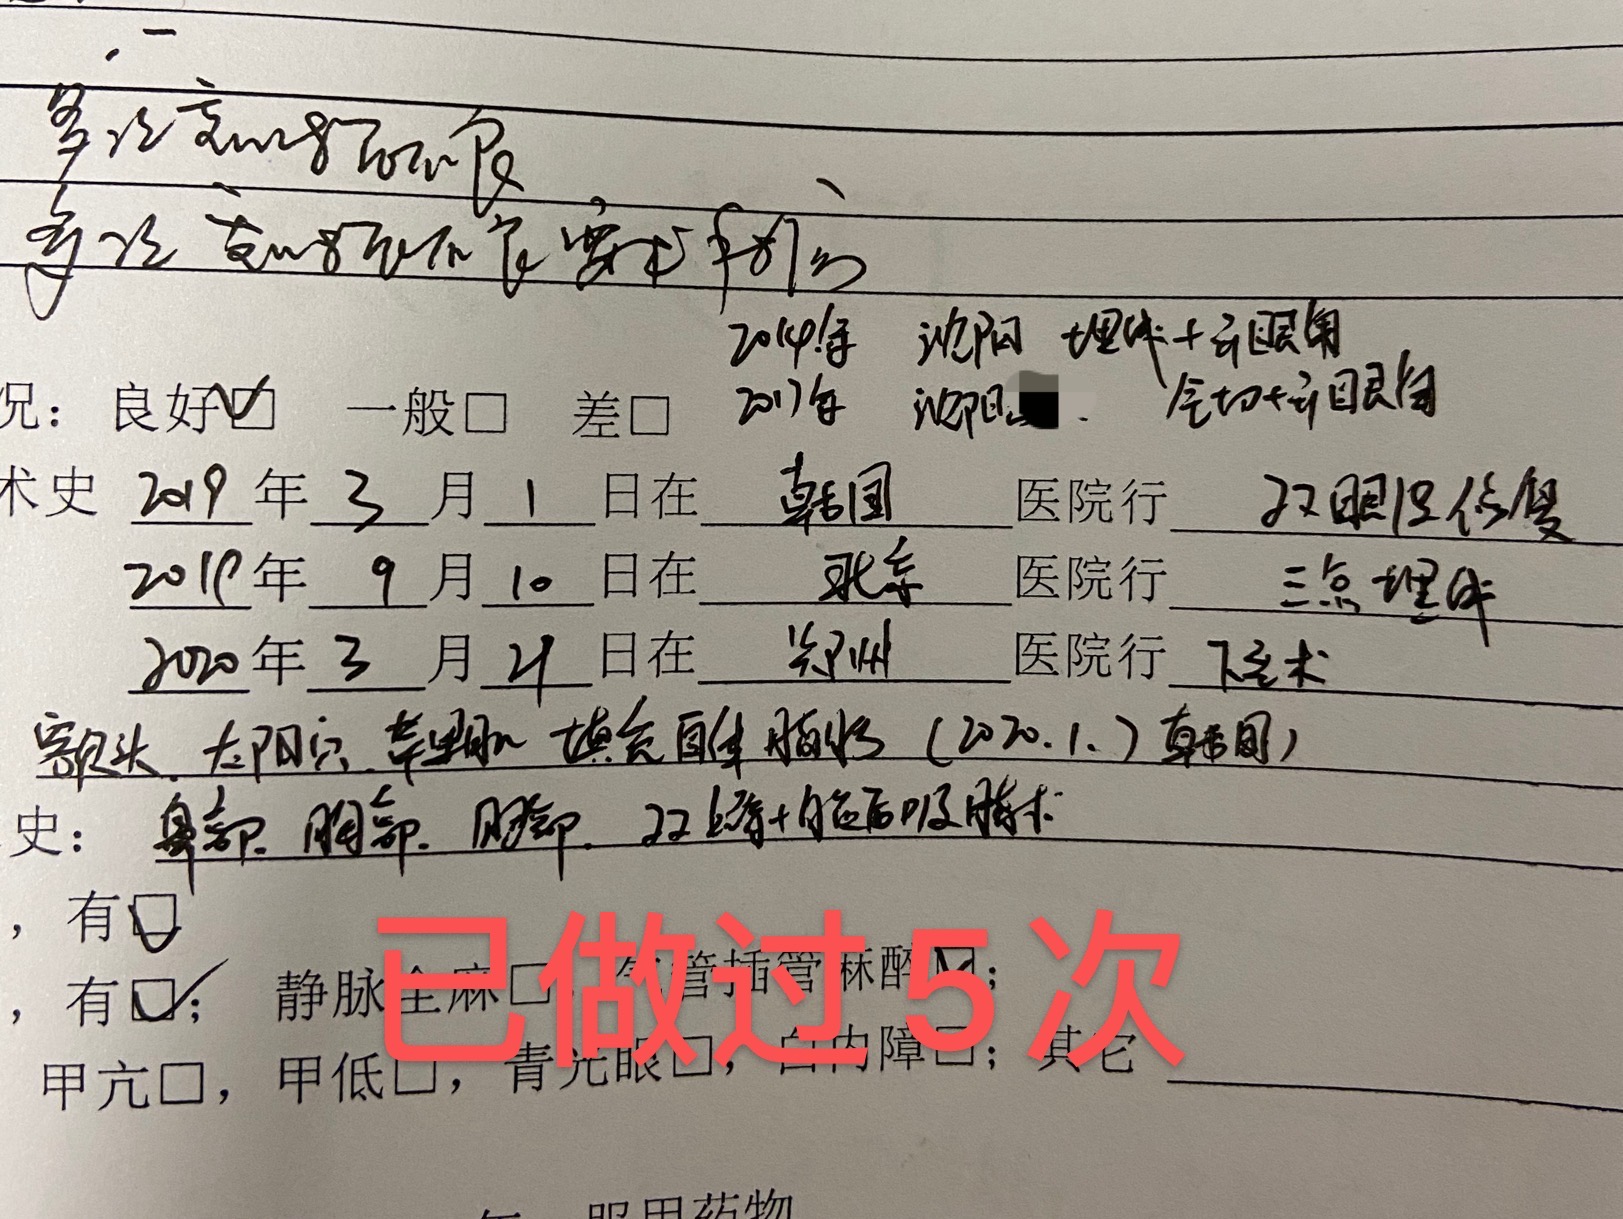 多次双眼术后不良
多次双眼术后不良要求手术
2014年 沈阳 埋线+开眼角
2017年 沈阳 全切+开眼角
况：良好☑ 一般□ 差□
术史 2019年3月1日在韩国医院行双眼皮修复
2019年9月10日在北京医院行三点埋线
2020年3月21日在郑州医院行下至术
额头、太阳穴、苹果肌 填充自体脂肪（2020.1.）韩国）
史：鼻部、胸部、腰部、双上臂+
吸脂术
，有☑
，有☑； 静脉全麻□，气管插管麻醉☑；
已做过5次
甲亢□，甲低□，青光眼□，白内障□；其它
年 服用药物